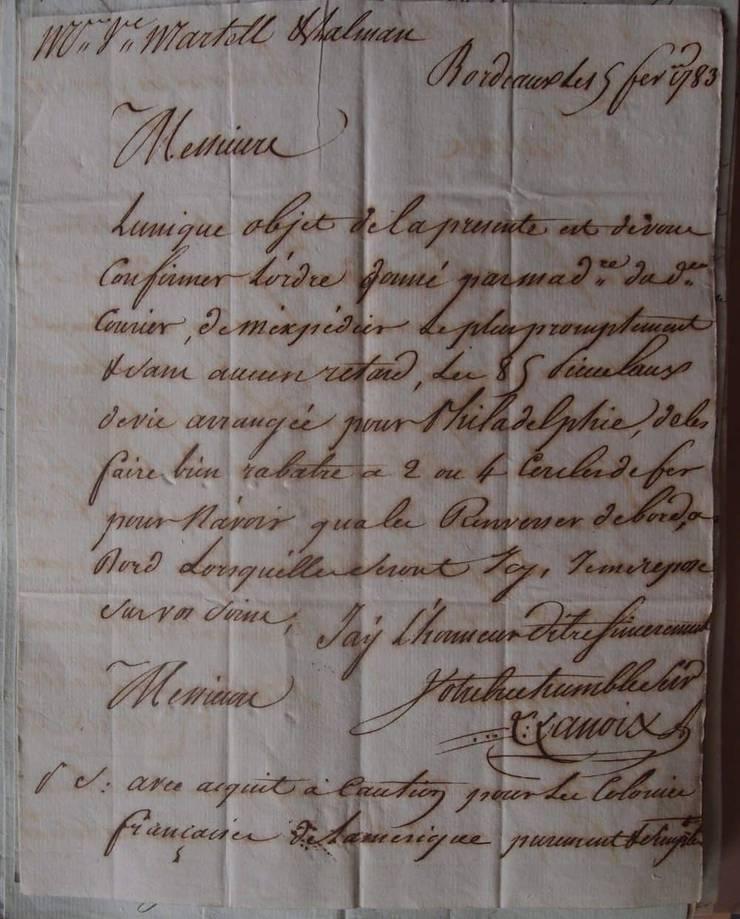 Mrs Ve Martell & Lalman
Bordeaux Les 5 fer 1783
Messieurs
Lunique objet de la presente est de vous
Confirmer L'ordre donné par mad.re du d.
Courier, de m'expédier Le plus promptement
& sans aucun retard, Les 85 Pieces Eaux
devie arrangée pour Philadelphie, de les
faire bien rabatre a 2 ou 4 Cercles de fer
pour N'avoir qua les Renverser de bord, a
Bord Lorsquélles Seront Icy, Jemerepose
Sur vos Soins, J'aÿ L'honneur d'être Sincerement
Messieurs Votre tres humble Ser
Lanoix
P S: avec acquit à Caution pour Les Colonies
françaises de Lamerique purement & Simple